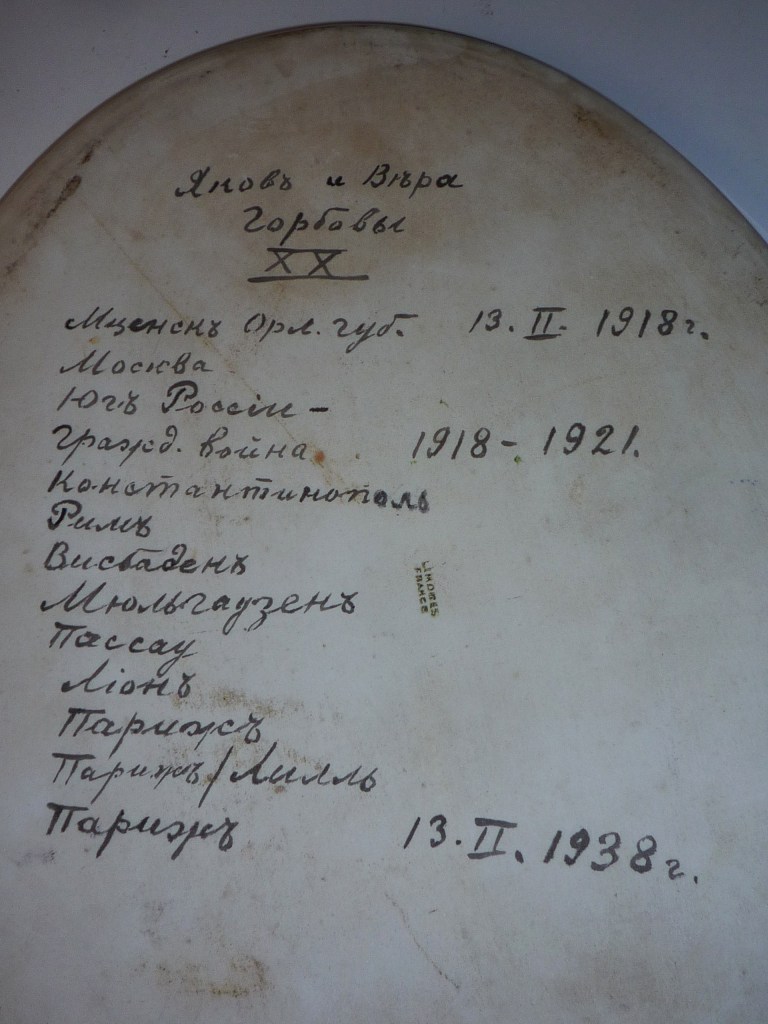 Яковъ и Вѣра
Горбовы
XX
Мценскъ Орл. губ. 13. II. 1918 г.
Москва
Югъ Россіи –
гражд. война 1918 – 1921.
Константинополь
Римъ
Висбаденъ
Мюльгаузенъ
Пассау
Ліонъ
Парижъ
Парижъ/Лилль
Парижъ 13. II. 1938 г.
LIMOGES
FRANCE